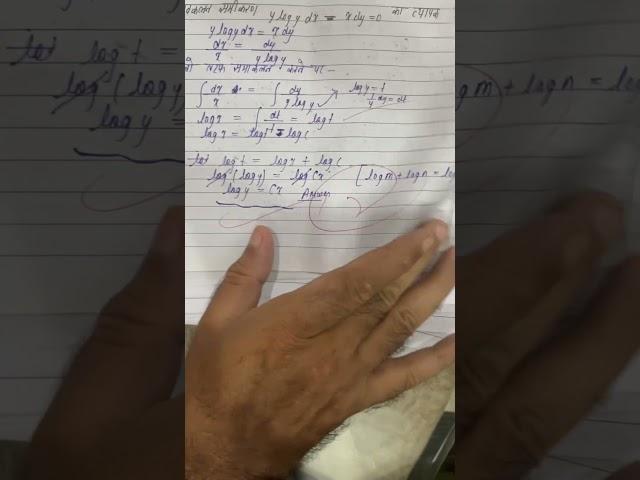 समीकरण y log y dx - x dy = 0 का व्यापक
y log y dx = x dy
dx/x = dy/(y log y)
तरफ समाकलन करने पर -
∫ dx/x = ∫ dy/(y log y) → log y = t
1/y dy = dt
log x = ∫ dt/t = log t
log x = log t - log c
let log t = log x + log c
log (log y) = log cx [log m + log n = lo
log y = cx Answer